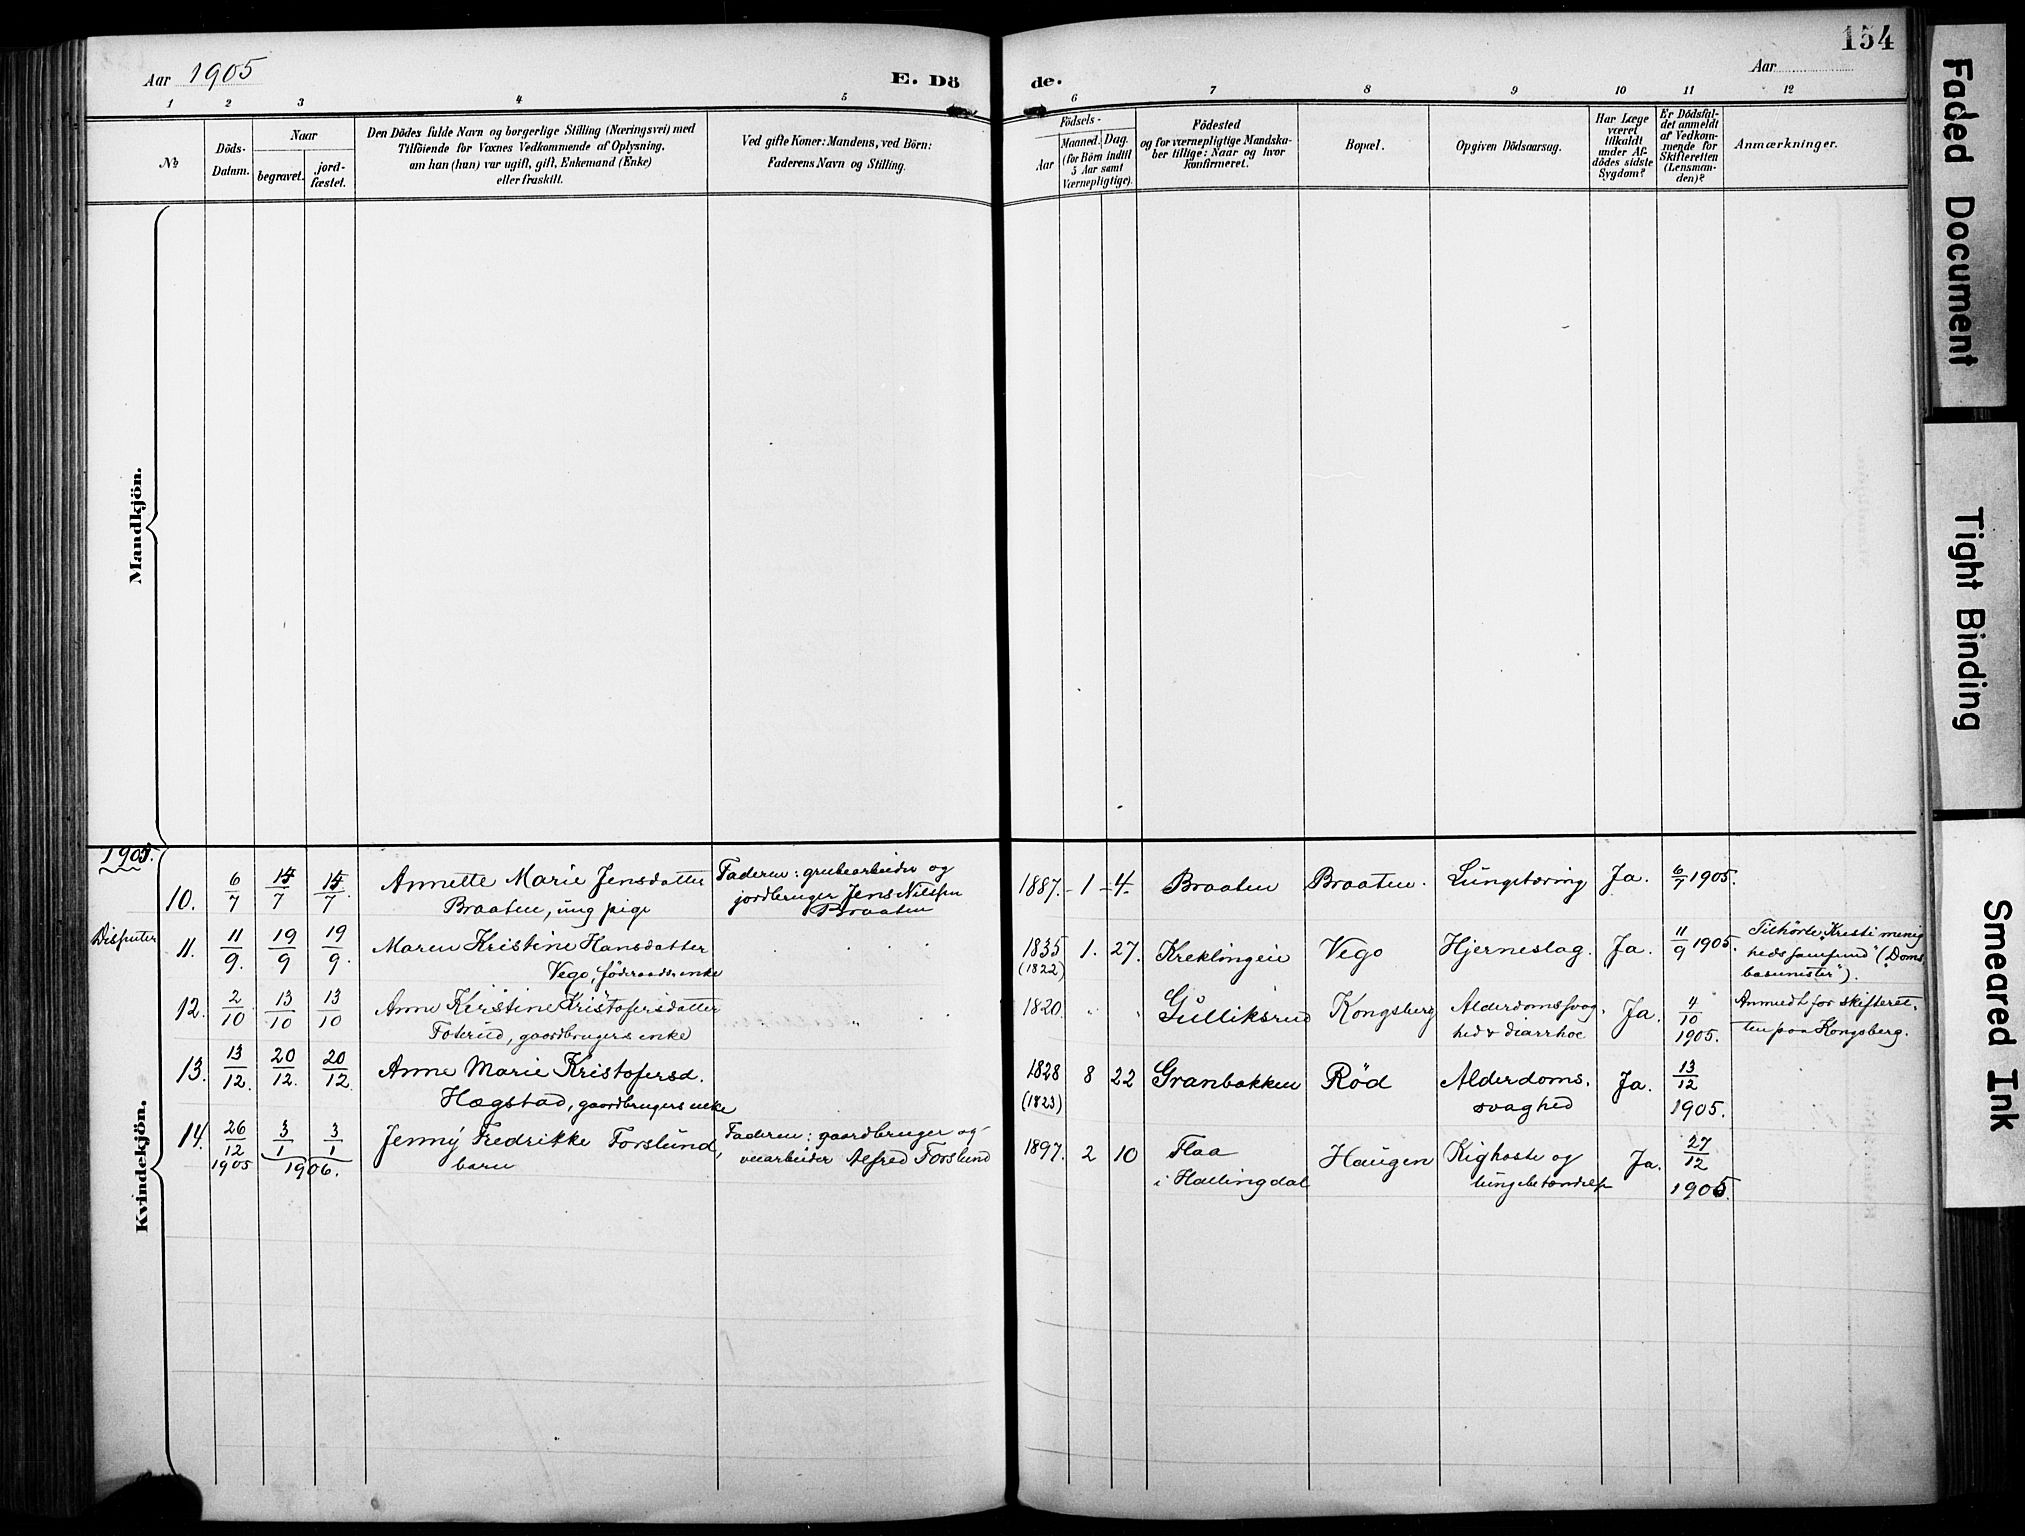 154
Aar 1905
E. Dö
de.
Aar
1 2 3 4 5
6 7 8 9 10 11 12
No
Döds-
Datum.
Naar
begravet.
jord-
fæstet.
Den Dödes fulde Navn og borgerlige Stilling (Næringsvei) med
Tilföiende for Voxnes Vedkommende af Oplysning,
om han (hun) var ugift, gift, Enkemand (Enke)
eller fraskilt.
Ved gifte Koner: Mandens, ved Börn:
Faderens Navn og Stilling.
Födsels-
Aar
Maaned. Dag.
(for Börn indtil
5 Aar samt
Værnepligtige).
Födested
og for værnepligtige Mandska-
ber tillige: Naar og hvor
konfirmeret.
Bopæl.
Opgiven Dödsaarsag.
Har Læge
været
tilkaldt
under Af-
dödes sidste
Sygdom?
Er Dödsfal-
det anmeldt
af Vedkom-
mende for
Skifteretten
(Lensman-
den)?
Anmærkninger.
Mandkjön.
Kvindekjön.
1905.
10. 6/7 15/7 15/7. Annette Marie Jensdatter
Braaten, ung pige
Faderen: grubearbeider og
jordbruger Jens Nilsen
Braaten
1887. - 1 - 4. Braaten Braaten. Lungetæring Ja. 6/7 1905.
Disputer
11. 11/9. 19/9 19/9. Maren Kristine Hansdatter
Vego, föderaads enke
1835
(1822)
1. 27. Kreklingeie Vego Hjerneslag. Ja. 11/9 1905.
Tilhörte "Kristi menig
heds samfund" ("Doms
basunister").
12. 2/10 13/10 13/10 Anne Kirstine Kristofersdatter
Foterud, gaardbrugers enke
1820. " " Gulliksrud Kongsberg Alderdomssvag
hed & diarrhoe
Ja. 4/10
1905.
Anmeldt for skifteret-
ten paa Kongsberg.
13. 13/12. 20/12. 20/12 Anne Marie Kristofersd.
Hægstad, gaardbrugers enke
1828
(1823)
8 22 Granbakken Rød Alderdoms.
svaghed
Ja. 13/12
1905.
14. 26/12
1905
3/1 3/1
1906.
Jenny Fredrikke Forslund,
barn
Faderen: gaardbruger og
veiarbeider Alfred Forslund
1897. 2 10 Flaa
i Hallingdal
Haugen Kighoste og
lungebetændelse
Ja. 27/12
1905
Faded Document
Tight Binding
Smeared Ink